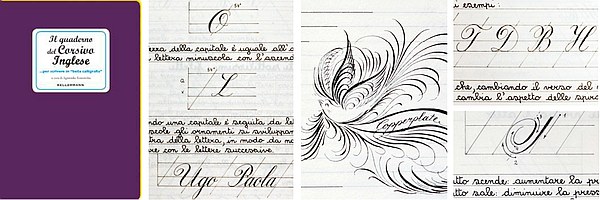 Il quaderno
del Corsivo
Inglese
...per scrivere in "bella calligrafia"
KELLERMANN
54°
O
ezza della capitale è uguale all'a
lettera minuscola con l'ascend
54°
L
ndo una capitale è seguita da le
scole gli ornamenti si sviluppan
tra della lettera, in modo da no
re con le lettere successive.
Ugo Paola
Copperplate
i esempi:
T D B H
che, cambiando il verso del
cambia l'aspetto delle spira
tto scende aumentare la pr
tto sale: diminuire la press